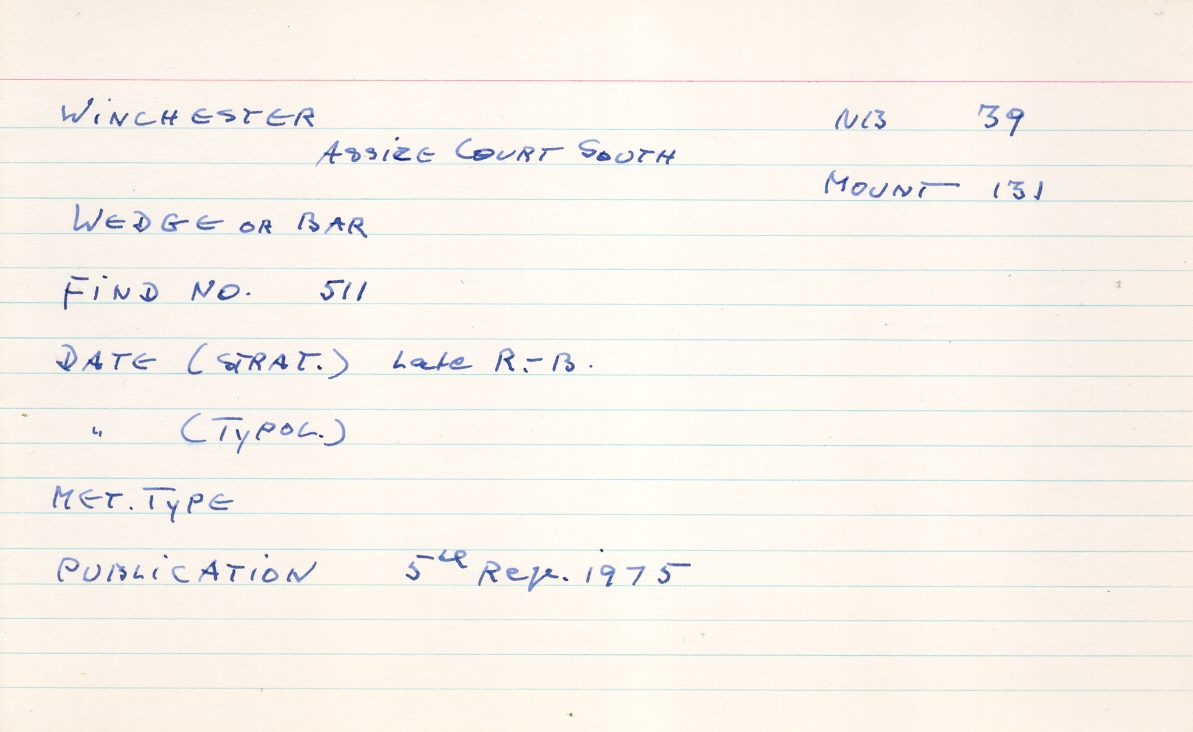 WINCHESTER NB 39
ASSIZE COURT SOUTH
MOUNT 131
WEDGE OR BAR
FIND NO. 511
DATE (STRAT.) Late R.-B.
" (TYPOL.)
MET. TYPE
PUBLICATION 5th Rep. 1975